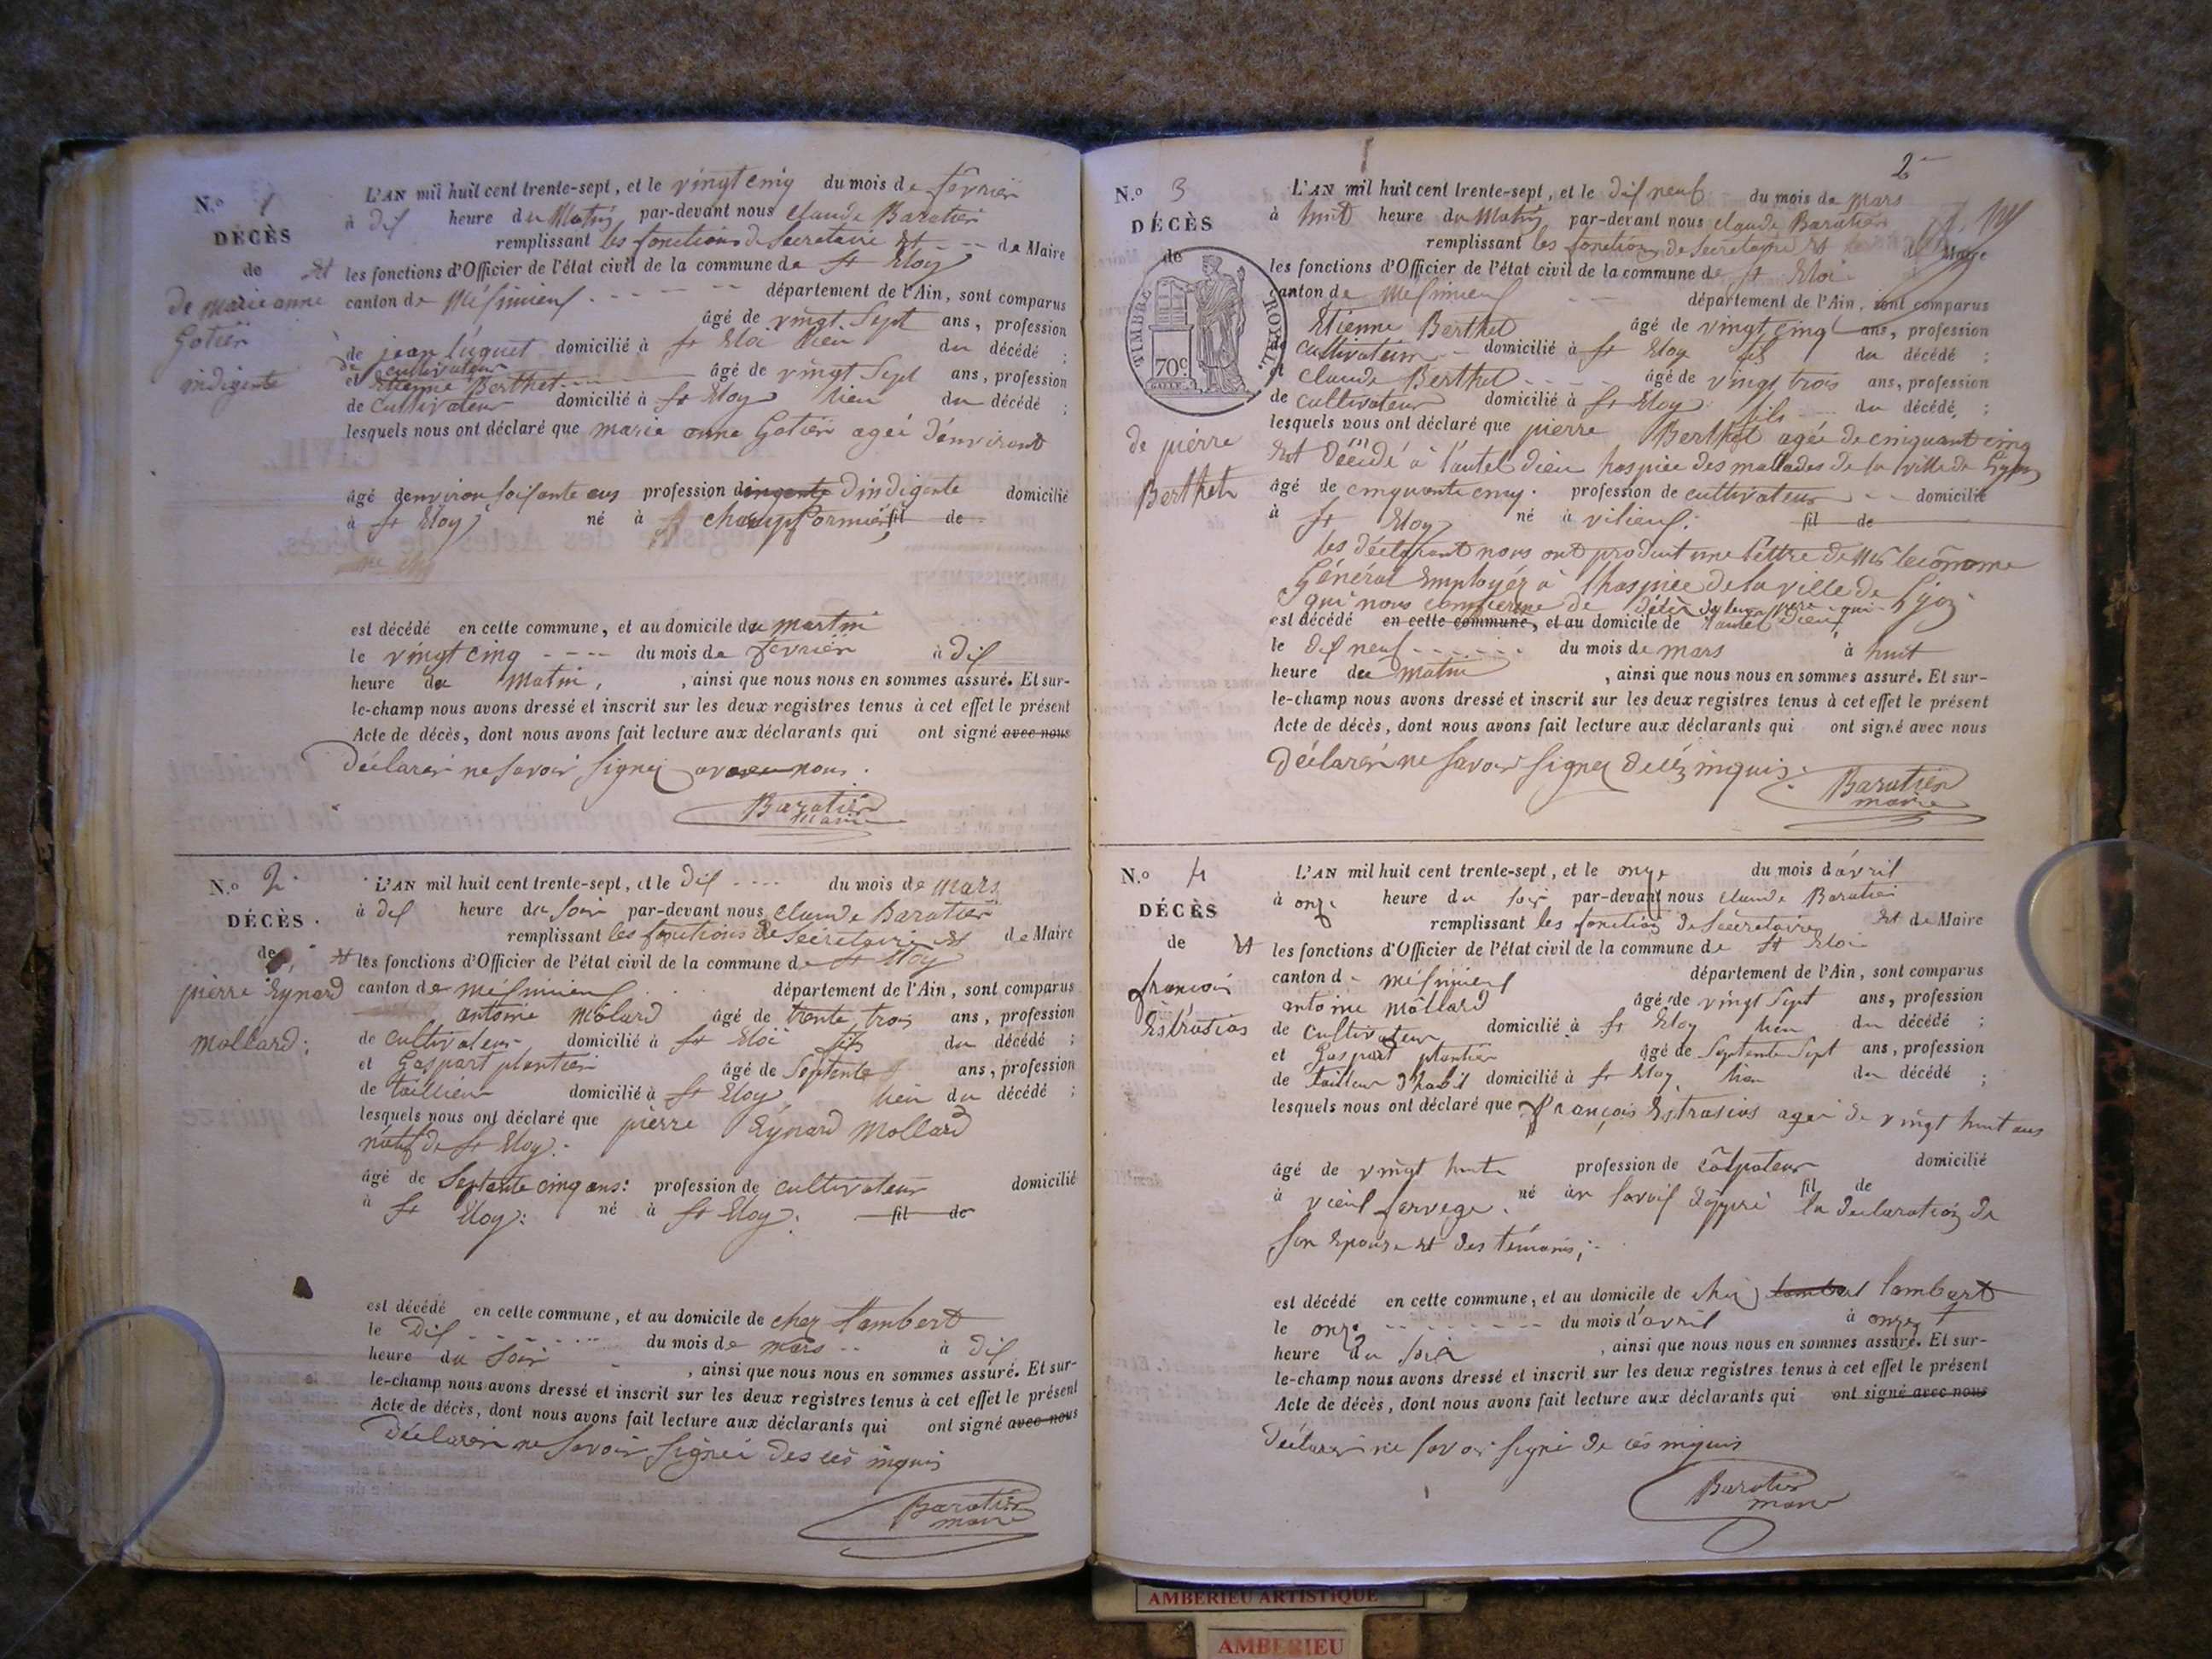 N.o 1
DÉCÈS
de
de marie anne
Gotier
indigente
L'AN mil huit cent trente-sept, et le vingt cinq du mois de fevrier
à dix heure du Matin par-devant nous Claude Baratier
remplissant les fonctions de Secretaire et - - de Maire
et les fonctions d'Officier de l'état civil de la commune de st Eloy
canton de Meximieux - - - - département de l'Ain, sont comparus
âgé de vingt Sept ans, profession
de jean luquet domicilié à st Eloi lieu du décédé ;
de cultivateur
et Etienne Berthet - - - âgé de vingt Sept ans, profession
de cultivateur domicilié à st Eloy lieu du décédé ;
lesquels nous ont déclaré que marie anne Gotier ageé d'environt
âgé denviron soixante ans profession dindigente domicilié
à st Eloy né à fil de
est décédé en cette commune, et au domicile de martin
le vingt cinq - - - - du mois de fevrier à dix
heure du Matin, , ainsi que nous nous en sommes assuré. Et sur-
le-champ nous avons dressé et inscrit sur les deux registres tenus à cet effet le présent
Acte de décès, dont nous avons fait lecture aux déclarants qui ont signé avec nous
Déclarer ne savoir signer nous.
Baratier
maire
N.o 2
DÉCÈS
de
pierre Eynard
Mollard;
L'AN mil huit cent trente-sept, et le dix - - - - du mois de mars
à dix heure du soir par-devant nous Claude Baratier
remplissant les fonctions de Secretaire et de Maire
et les fonctions d'Officier de l'état civil de la commune de st Eloy
canton de meximieux département de l'Ain, sont comparus
antoine Molard âgé de trente trois ans, profession
de cultivateur domicilié à st Eloi fils du décédé ;
et Gaspart plantier âgé de Septente ans, profession
de taillieur domicilié à st Eloy lieu du décédé ;
lesquels nous ont déclaré que pierre Eynard Mollard
natif de st Eloy.
âgé de Septente cinq ans: profession de cultivateur domicilié
à st Eloy: né à st Eloy: fil de
est décédé en cette commune, et au domicile de chez lambert
le Dix - - - - du mois de mars - - à dix
heure du Soir , ainsi que nous nous en sommes assuré. Et sur-
le-champ nous avons dressé et inscrit sur les deux registres tenus à cet effet le présent
Acte de décès, dont nous avons fait lecture aux déclarants qui ont signé avec nous
Déclarer ne savoir signer des ces inquis
Baratier
maire
2
N.o 3
DÉCÈS
de
TIMBRE ROYAL
70c
de pierre
Berthet
L'AN mil huit cent trente-sept, et le dix neuf du mois de mars
à huit heure du Matin par-devant nous claude Baratier
remplissant les fonction de Secretaire et de Maire
les fonctions d'Officier de l'état civil de la commune de st Eloi
canton de Meximieux département de l'Ain, sont comparus
Etienne Berthet âgé de vingt cinq ans, profession
de cultivateur domicilié à st Eloy fils du décédé ;
et claude Berthet - - - - âgé de vingt trois ans, profession
de cultivateur domicilié à st Eloy fils du décédé ;
lesquels nous ont déclaré que pierre Berthet agée de cinquant cinq
Est Décédé à l'autel dieu hospice des mallades de la ville de Lyon
âgé de cinquante cinq. profession de cultivateur - - domicilié
à st Eloy né à vilieux: fil de
les déclarant nous ont produit une lettre de Mr leconome
Général Employéz à lhospice de la ville de Lyon
qui nous de qui
est décédé en cette commune, et au domicile de l'autel Dieu
le dix neuf - - - - du mois de mars à huit
heure du matin , ainsi que nous nous en sommes assuré. Et sur-
le-champ nous avons dressé et inscrit sur les deux registres tenus à cet effet le présent
Acte de décès, dont nous avons fait lecture aux déclarants qui ont signé avec nous
Déclarer ne savoir signer inquis.
Baratier
maire
N.o 4
DÉCÈS
de
francois
Estrasias
L'AN mil huit cent trente-sept, et le onze du mois d'avril
à onze heure du soir par-devant nous claude Baratier
remplissant les fonction de Secretaire et de Maire
et les fonctions d'Officier de l'état civil de la commune de st Eloi
canton de méximieux département de l'Ain, sont comparus
antoine môllard âgé de vingt Sept ans, profession
de cultivateur domicilié à st Eloy lieu du décédé ;
et Gaspart plantier âgé de Septente Sept ans, profession
de tailleur d'habil domicilié à st Eloy lieu du décédé ;
lesquels nous ont déclaré que françois Estrasias ageé de vingt huit ans
âgé de vingt huit profession de domicilié
à né fil de la declaration de
son Epouse et des témoins;
est décédé en cette commune, et au domicile de chez lambert lambert
le onze - - - - du mois d'avril à onze
heure du soir , ainsi que nous nous en sommes assuré. Et sur-
le-champ nous avons dressé et inscrit sur les deux registres tenus à cet effet le présent
Acte de décès, dont nous avons fait lecture aux déclarants qui ont signé avec nous
Déclarer ne savoir signé de ces inquis
Baratier
maire
AMBERIEU ARTISTIQUE
AMBERIEU